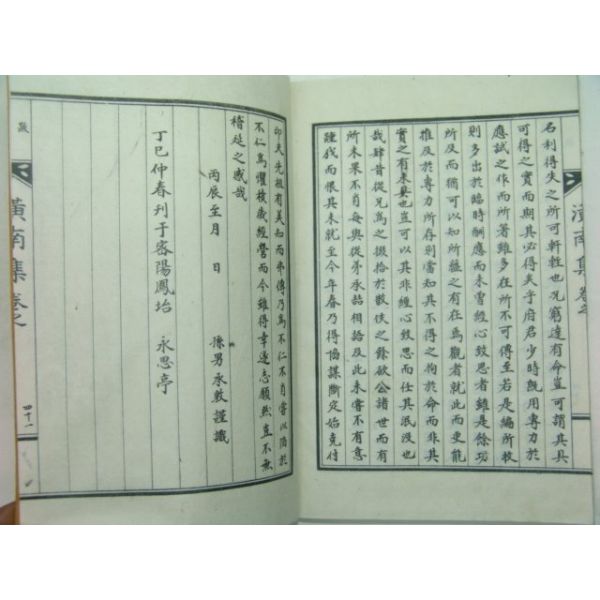 潢南集 卷之
名利得失之所可軒輊也况窮達有命豈可謂其具
可得之實而期其必得矣乎府君少時旣用專力於
應試之作而所著雖多在所不可傳至若是編所收
則多出於臨時酬應而未曾經心致思者雖是餘功
所及而猶可以知所蘊之有在爲觀者就此而更能
推及於專力所存則當知其不得之拘於命而非其
實之有未具也豈可以其非經心致思而任其泯沒也
哉肆昔從兄爲之掇拾於散佚之餘欲公諸世而有
所未果不肖每與從弟永喆相語及此未嘗不有意
踵成而恨其未就至今年春乃得協謀斷定始克付
印夫先祖有美知而弗傳乃爲不仁不肖嘗以陷於
不仁爲懼積歲經營而今雖得幸遂志願然豈不無
稽延之慽哉
丙辰至月 日 孫男永敦謹識
丁巳仲春刊于密陽鳳坮 永思亭
跋 潢南集 卷之 四十一